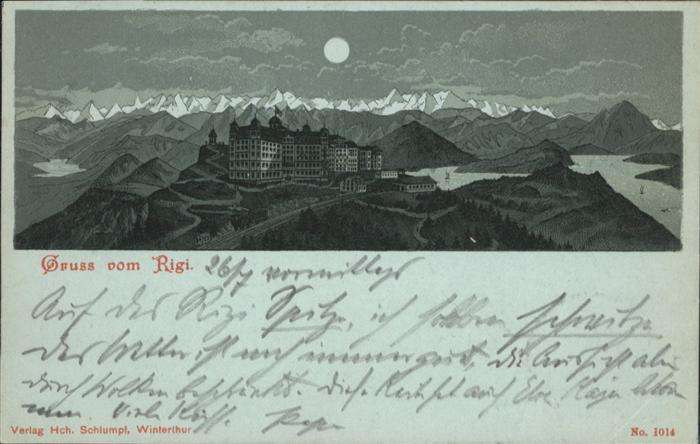 Gruss vom Rigi. 26/7 vormittags
Auf der Rigi Spitze, ich selbst schwitze
das Wetter ist noch immer gut, die Aussicht aber
durch Wolken beschränkt. Diese Karte auf
Viele Küsse. Papa
Verlag Hch. Schlumpf, Winterthur
No. 1014